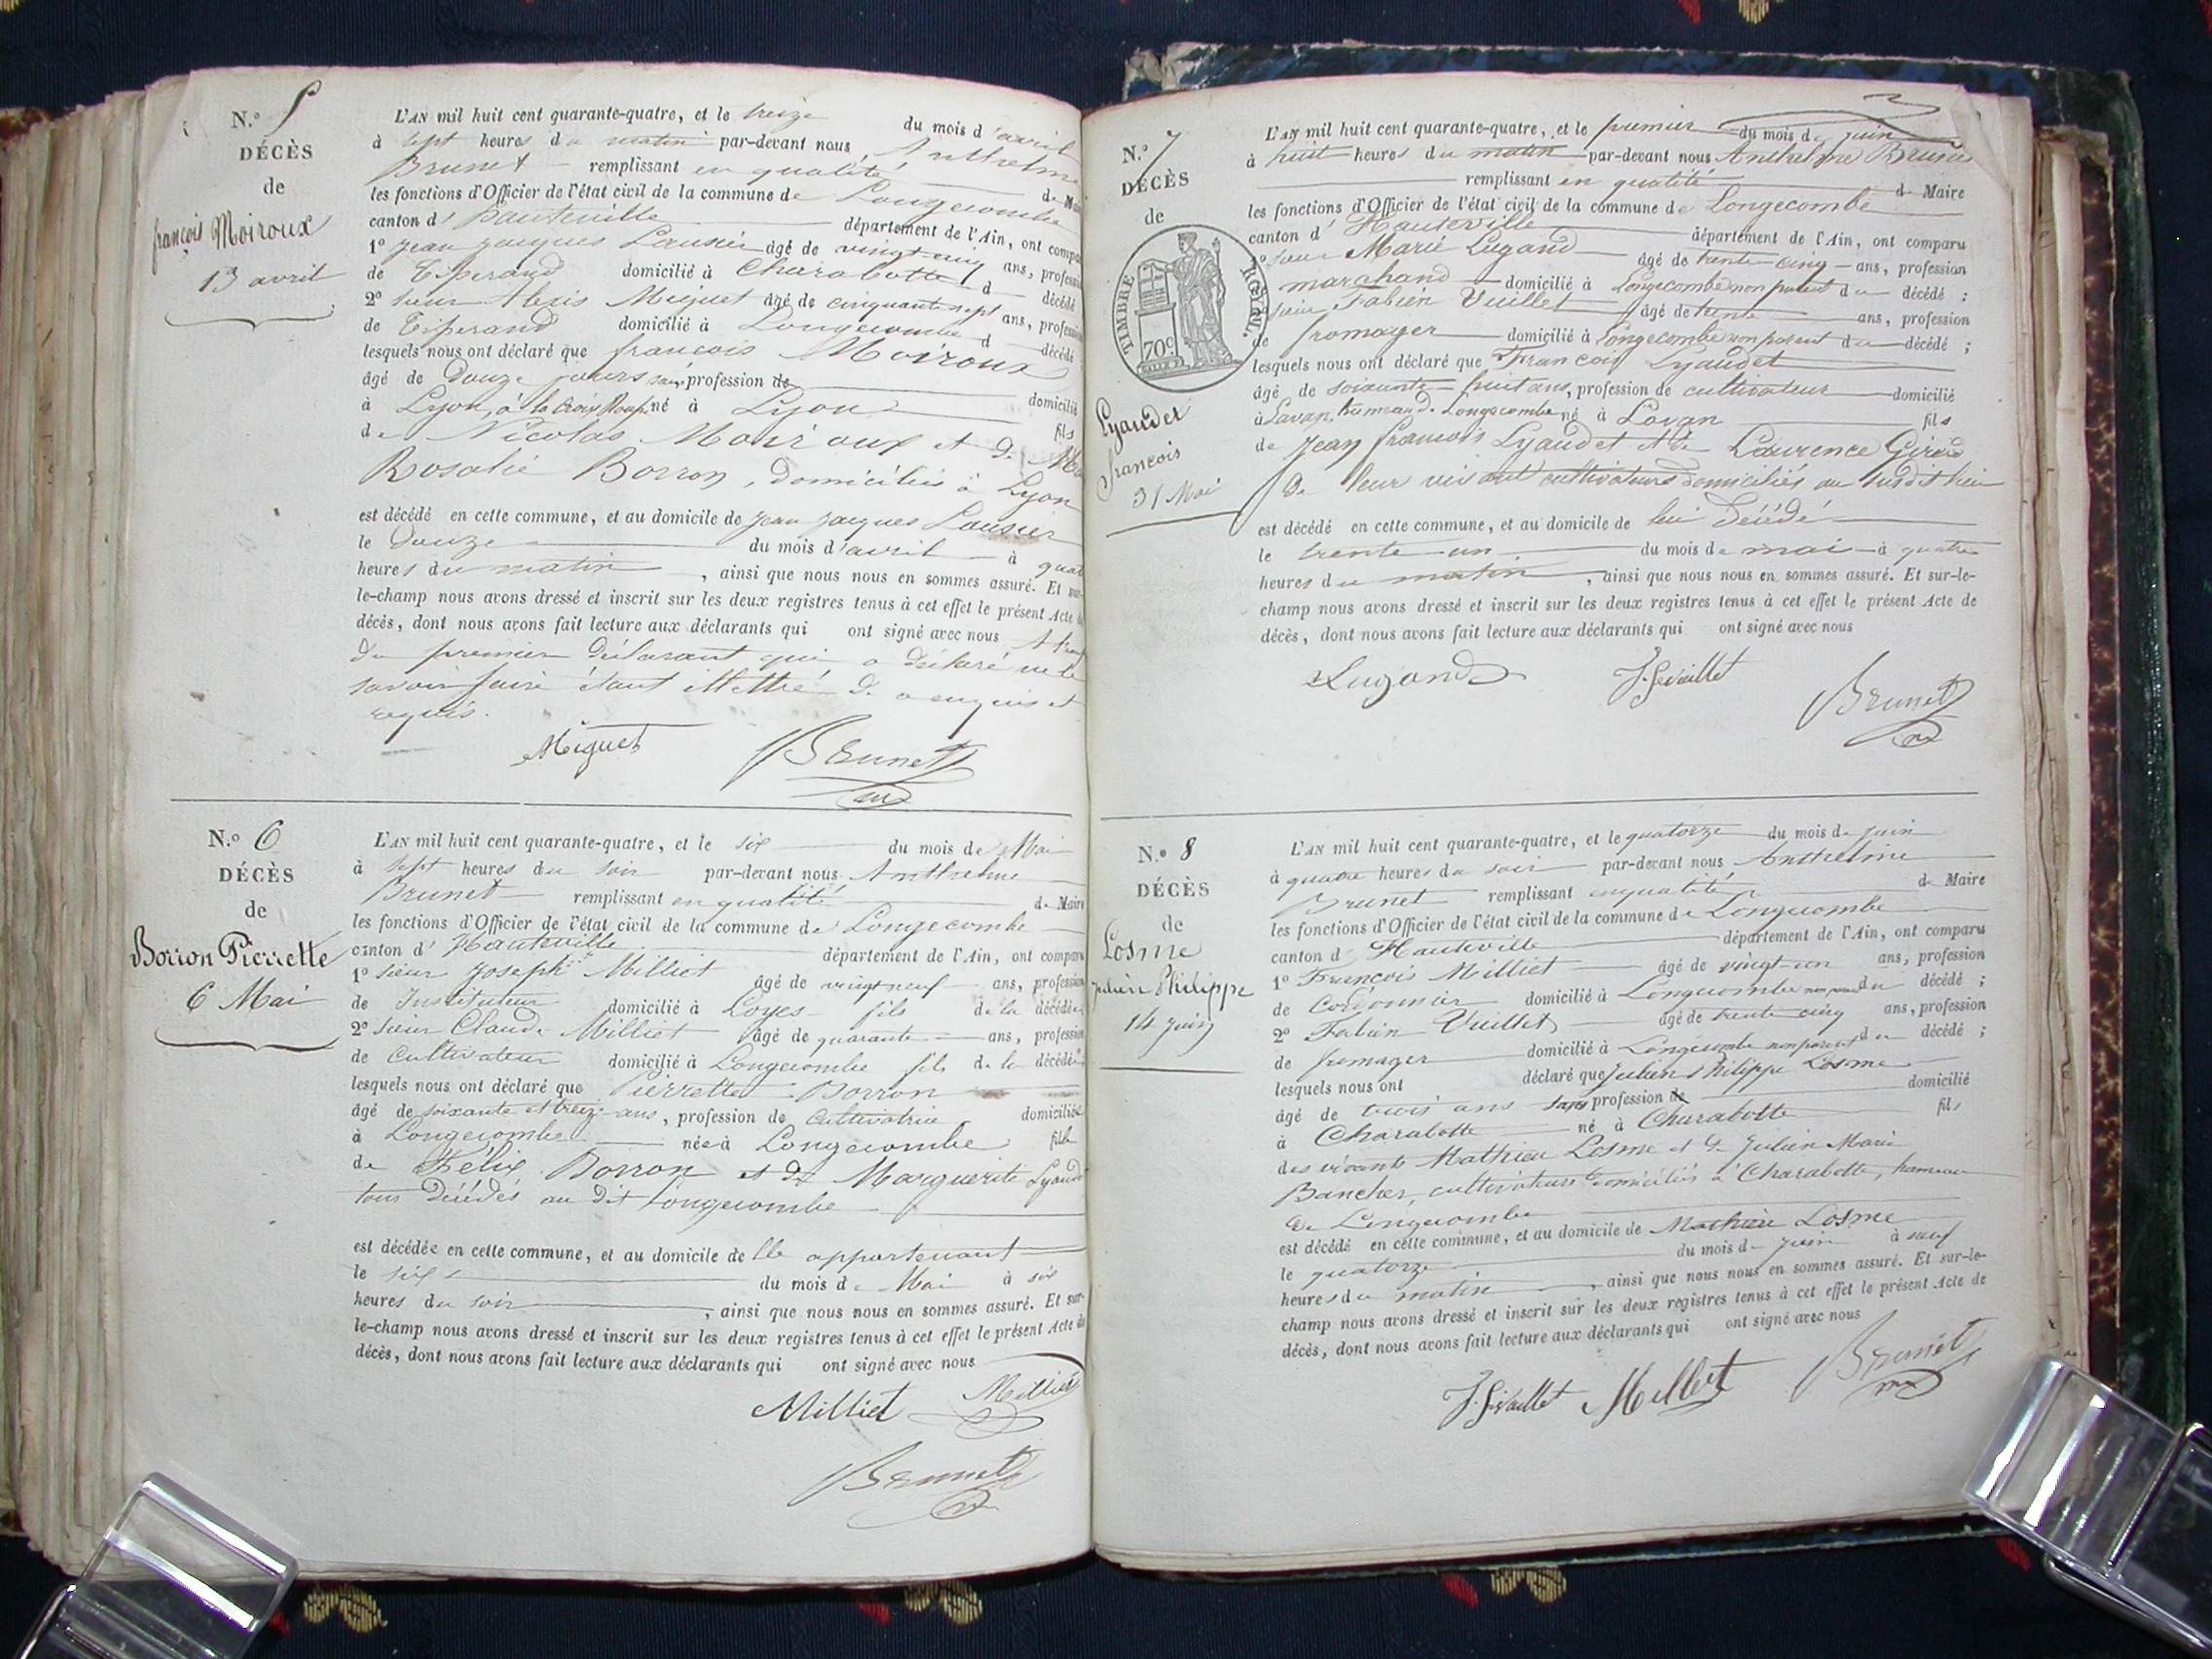 N.º 5
DÉCÈS
de
françois Moiroux
13 avril
L'AN mil huit cent quarante-quatre, et le treize du mois d'avril
à sept heures du matin par-devant nous Anthelme
Brunet remplissant en qualité de
les fonctions d'Officier de l'état civil de la commune de Longecombe
canton d' Hauteville département de l'Ain, ont compa
1º Jean Jacques âgé de vingt-cinq ans, profession
de Tisserand domicilié à Charabotte d décédé
2º sieur Alexis Miguet âgé de cinquante sept ans, profession
de Tisserand domicilié à Longecombe d décédé
lesquels nous ont déclaré que françois Moiroux
âgé de Douze jours sans profession de domicilié
à Lyon, à la Croix Rousse né à Lyon fils
de Nicolas Moiroux et de
Rosalie Borron, domiciliés à Lyon
est décédé en cette commune, et au domicile de Jean Jacques
le Douze du mois d'avril à
heures du matin, ainsi que nous nous en sommes assuré. Et sur-
le-champ nous avons dressé et inscrit sur les deux registres tenus à cet effet le présent Acte de
décès, dont nous avons fait lecture aux déclarants qui ont signé avec nous
du premier déclarant qui a déclaré ne le
savoir faire étant illettré de ce enquis et
requis.
Miguet Brunet
N.º 6
DÉCÈS
de
Borron Pierrette
6 Mai
L'AN mil huit cent quarante-quatre, et le six du mois de Mai
à sept heures du soir par-devant nous Anthelme
Brunet remplissant en qualité de Maire
les fonctions d'Officier de l'état civil de la commune de Longecombe
canton d' Hauteville département de l'Ain, ont comparu
1º sieur Joseph Milliet âgé de vingt neuf ans, profession
de Instituteur domicilié à Loyes fils de la décédée
2º sieur Claude Milliet âgé de quarante ans, profession
de Cultivateur domicilié à Longecombe fils de la décédée
lesquels nous ont déclaré que Pierrette Borron
âgé de soixante et treize ans, profession de Cultivatrice domiciliée
à Longecombe née à Longecombe fille
de Félix Borron et de Marguerite Lyaudet
tous décédés au dit Longecombe
est décédée en cette commune, et au domicile de lle appartenant
le six du mois de Mai à six
heures du soir, ainsi que nous nous en sommes assuré. Et sur-
le-champ nous avons dressé et inscrit sur les deux registres tenus à cet effet le présent Acte de
décès, dont nous avons fait lecture aux déclarants qui ont signé avec nous
Milliet Milliet
Brunet
N.º 7
DÉCÈS
de
TIMBRE ROYAL.
70c.
Lyaudet
françois
31 Mai
L'AN mil huit cent quarante-quatre, et le premier du mois de juin
à huit heures du matin par-devant nous Anthelme Brunet
remplissant en qualité de Maire
les fonctions d'Officier de l'état civil de la commune de Longecombe
canton d' Hauteville département de l'Ain, ont comparu
sieur Marie Lugand âgé de trente-cinq ans, profession
marchand domicilié à Longecombe non parent du décédé ;
sieur Fabien Vuillet âgé de trente ans, profession
de fromager domicilié à Longecombe non parent du décédé ;
lesquels nous ont déclaré que François Lyaudet
âgé de soixante-huit ans, profession de cultivateur domicilié
à Lavan, hameau de Longecombe né à Lavan fils
de Jean François Lyaudet et de Laurence Girard
De leur vivant cultivateurs domiciliés au susdit lieu
est décédé en cette commune, et au domicile de lui Décédé
le trente-un du mois de mai à quatre
heures du matin, ainsi que nous nous en sommes assuré. Et sur-le-
champ nous avons dressé et inscrit sur les deux registres tenus à cet effet le présent Acte de
décès, dont nous avons fait lecture aux déclarants qui ont signé avec nous
Lugand Brunet
N.º 8
DÉCÈS
de
Losme
Julien Philippe
14 juin
L'AN mil huit cent quarante-quatre, et le quatorze du mois de juin
à quatre heures du soir par-devant nous Anthelme
Brunet remplissant en qualité de Maire
les fonctions d'Officier de l'état civil de la commune de Longecombe
canton d' Hauteville département de l'Ain, ont comparu
1º François Milliet âgé de vingt-un ans, profession
de Cordonnier domicilié à Longecombe non parent du décédé ;
2º Fabien Vuillet âgé de trente cinq ans, profession
de fromager domicilié à Longecombe non parent du décédé ;
lesquels nous ont déclaré que Julien Philippe Losme
âgé de trois ans sans profession de domicilié
à Charabotte né à Charabotte fils
des vivants Mathieu Losme et de Julien Marie
Bancher, cultivateurs domiciliés à Charabotte, hameau
de Longecombe
est décédé en cette commune, et au domicile de Mathieu Losme
le quatorze du mois de juin à neuf
heures du matin, ainsi que nous nous en sommes assuré. Et sur-le-
champ nous avons dressé et inscrit sur les deux registres tenus à cet effet le présent Acte de
décès, dont nous avons fait lecture aux déclarants qui ont signé avec nous
Milliet Brunet